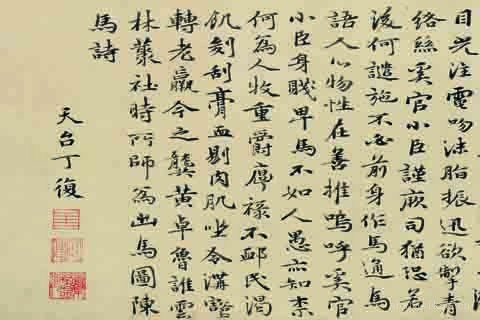 目光注電吻沫脂振迅欲掣青
絡絲奚官小臣謹厥司猶恐若
何譴施不必前身作馬通馬
語人心物性在善推嗚呼奚官
小臣身賤卑馬不如人愚亦知柰
何為人牧重爵厚祿不卹民渴
飢刮膏血剔肉肌坐令溝壑
轉老羸今之龔黃卓魯誰雲
林叢社時所師為出馬圖陳
馬詩
天台丁復